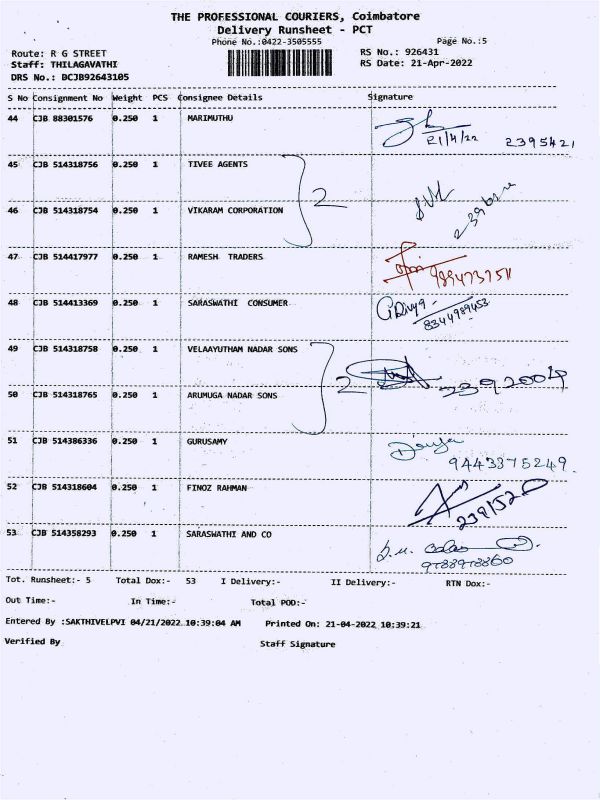 THE PROFESSIONAL COURIERS, Coimbatore
Delivery Runsheet - PCT
Phone No.:0422-3505555 Page No.:5
Route: R G STREET RS No.: 926431
Staff: THILAGAVATHI RS Date: 21-Apr-2022
DRS No.: BCJB92643105
S No Consignment No Weight PCS Consignee Details Signature
44 CJB 88301576 0.250 1 MARIMUTHU
21/4/22 2395421
45 CJB 514318756 0.250 1 TIVEE AGENTS
2
46 CJB 518318754 0.250 1 VIKARAM CORPORATION
47 CJB 514417977 0.250 1 RAMESH TRADERS
48 CJB 514413369 0.250 1 SARASWATHI CONSUMER
8344989453
49 CJB 514318758 0.250 1 VELAAYUTHAM NADAR SONS
2 2392004
50 CJB 514318765 0.250 1 ARUMUGA NADAR SONS
51 CJB 514386336 0.250 1 GURUSAMY
9443375249.
52 CJB 514318604 0.250 1 FINOZ RAHMAN
53 CJB 514358293 0.250 1 SARASWATHI AND CO
9788978860
Tot. Runsheet:- 5 Total Dox:- 53 I Delivery:- II Delivery:- RTN Dox:-
Out Time:- In Time:- Total POD:-
Entered By :SAKTHIVELPVI 04/21/2022 10:39:04 AM Printed On: 21-04-2022 10:39:21
Verified By Staff Signature